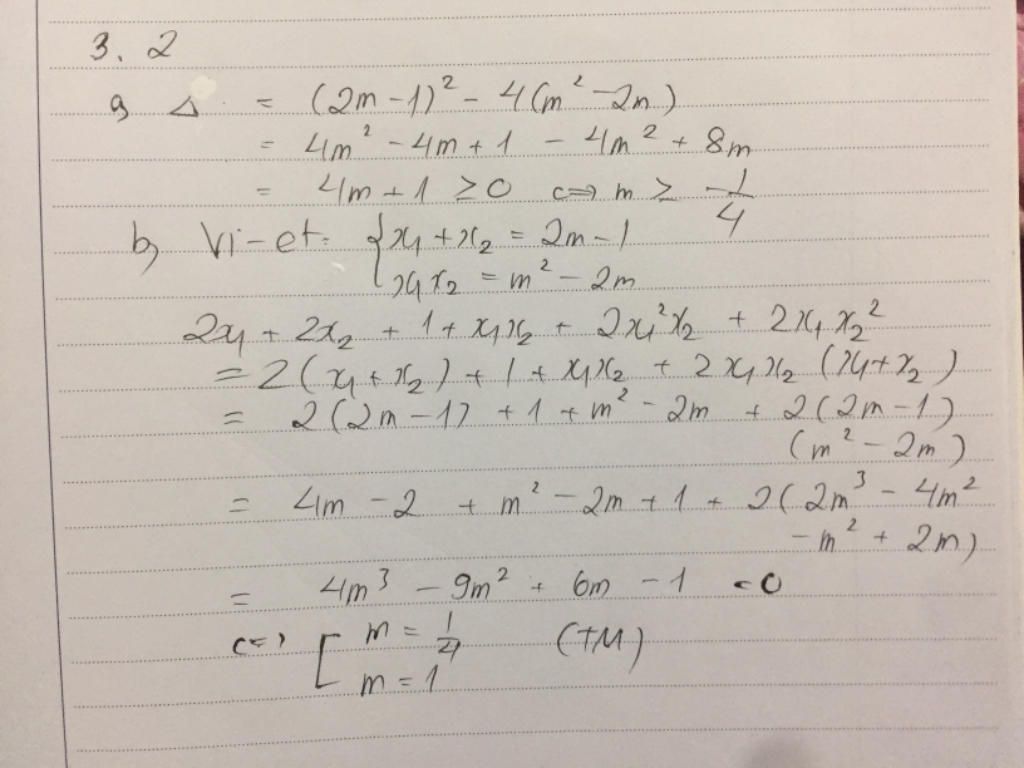 3. 2
a, Δ = (2m - 1)² - 4(m² - 2m)
= 4m² - 4m + 1 - 4m² + 8m
= 4m + 1 ≥ 0 <=> m ≥ -1/4
b, Vi-et: { x₁ + x₂ = 2m - 1
x₁x₂ = m² - 2m
2x₁ + 2x₂ + 1 + x₁x₂ + 2x₁²x₂ + 2x₁x₂²
= 2(x₁ + x₂) + 1 + x₁x₂ + 2x₁x₂(x₁ + x₂)
= 2(2m - 1) + 1 + m² - 2m + 2(2m - 1)
(m² - 2m)
= 4m - 2 + m² - 2m + 1 + 2(2m³ - 4m²
- m² + 2m)
= 4m³ - 9m² + 6m - 1 = 0
<=> [ m = 1/4 (TM)
m = 1